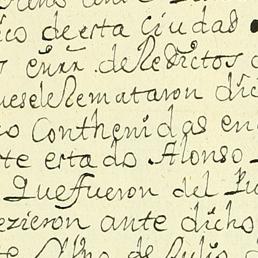 co de esta Ciudad
de Reditos
ueseleRemataron dic
o Conthenidas en
te estado Alonso
que fueron del Pu
ezieron ante dicho
de Julio de